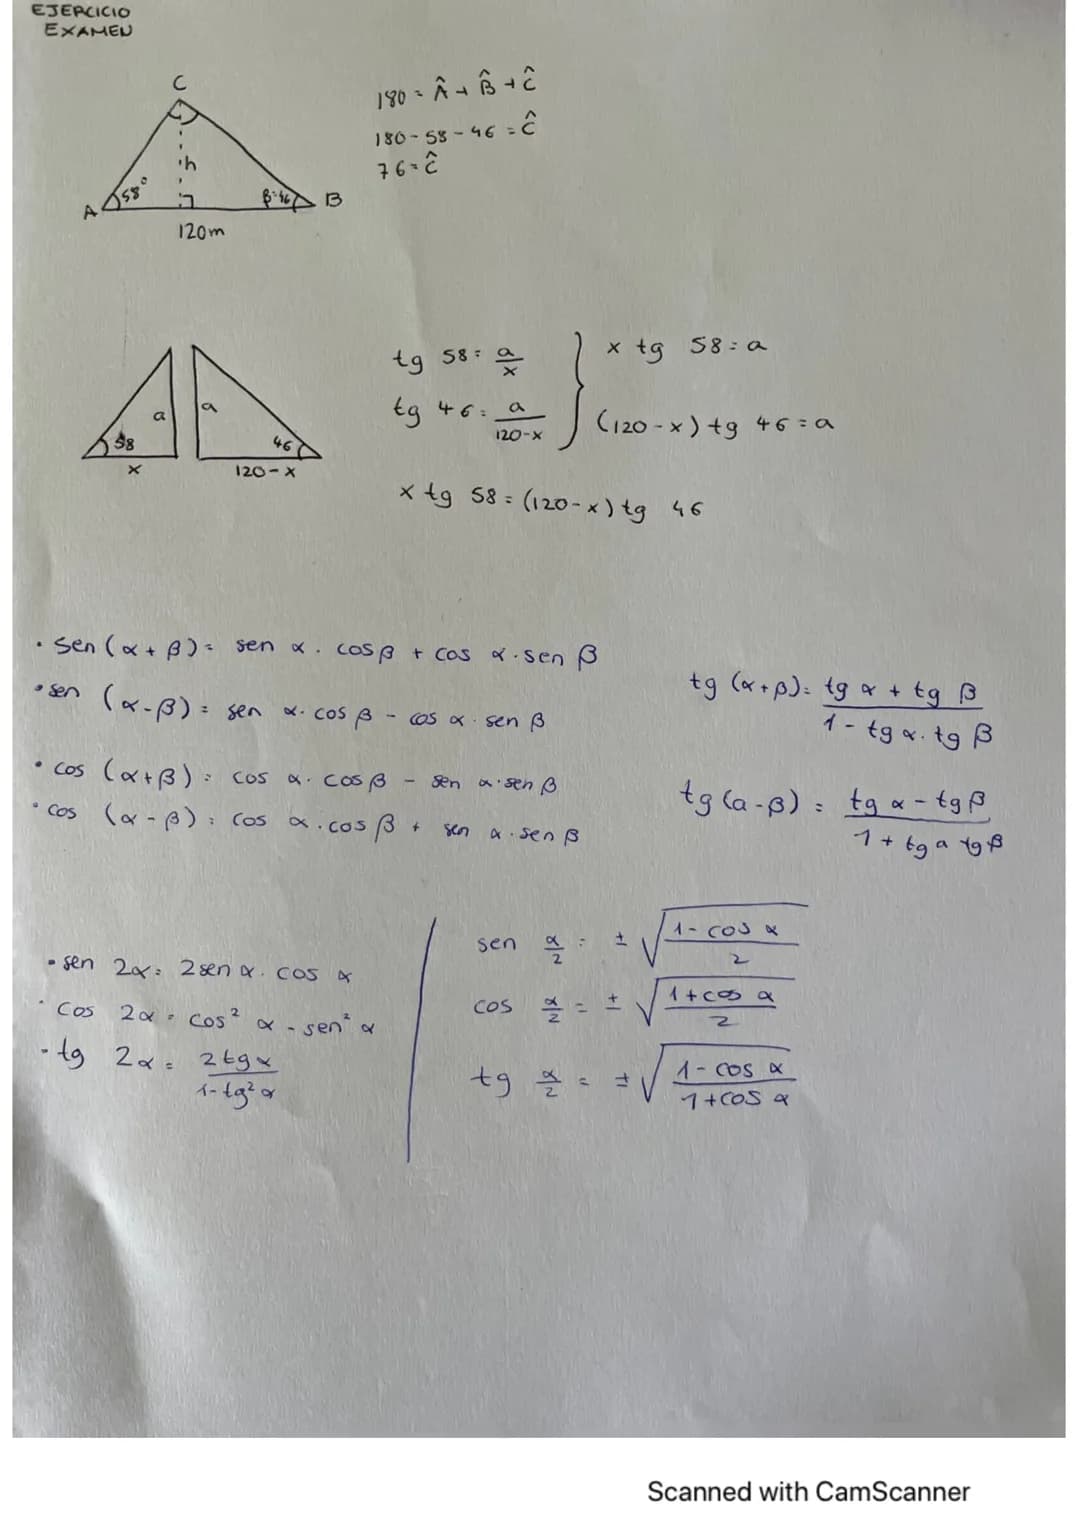 EJERCICIO
EXAMEN
C
h
58°
β=46
A
B
120m
180 = Â + B̂ + Ĉ
180-58-46 = Ĉ
76 = Ĉ
a
58
x
a
46
120-x
tg 58 = a/x
tg 46 = a/120-x
x tg 58 = a
(120-x) tg 46 = a
x tg 58 = (120-x) tg 46
• sen (α + β) = sen α . cos β + cos α . sen β
• sen (α-β) = sen α . cos β - cos α . sen β
• cos (α+β) = cos α . cos β - sen α . sen β
• cos (α - β) = cos α . cos β + sen α . sen β
tg (α+β) = tg α + tg β / 1 - tg α . tg β
tg (a-β) = tg α - tg β / 1 + tg a tg β
• sen 2α = 2 sen α . cos α
• cos 2α = cos² α - sen² α
• tg 2α = 2 tg α / 1 - tg² α
sen α/2 = ± √(1 - cos α / 2)
cos α/2 = ± √(1 + cos α / 2)
tg α/2 = ± √(1 - cos α / 1 + cos α)
Scanned with CamScanner